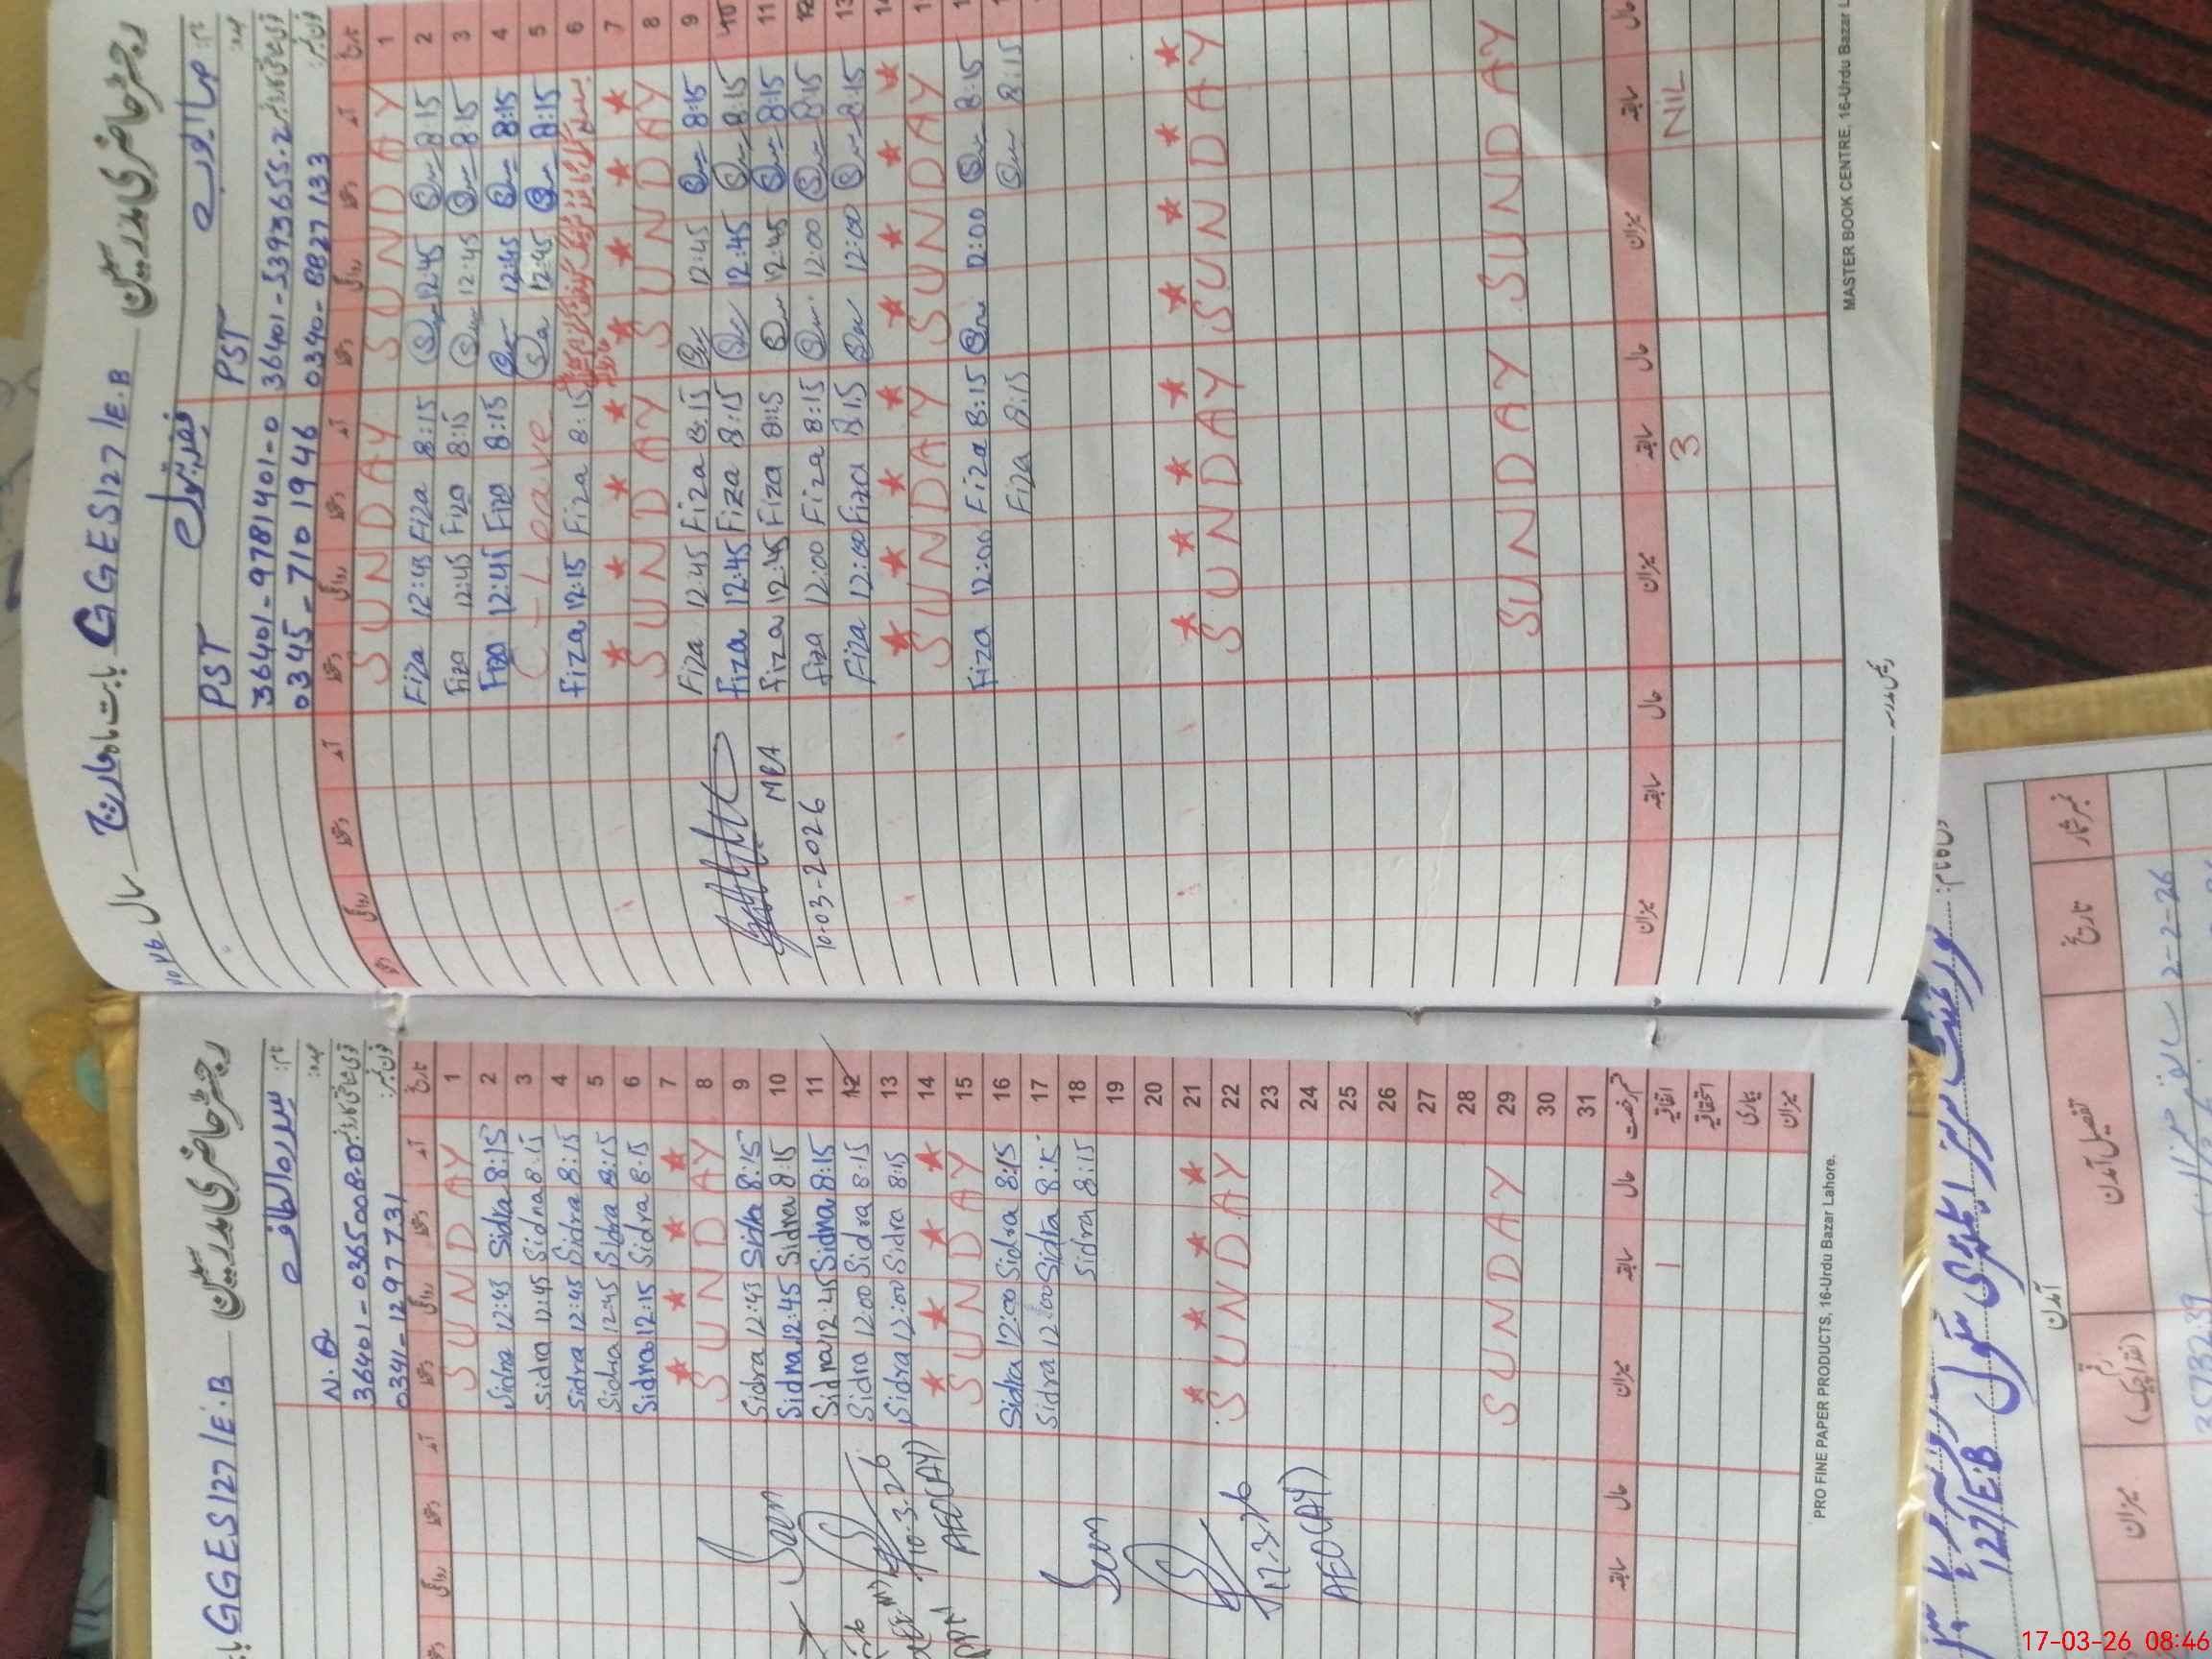 رجسٹر حاضری مدرسین GGES 127/E.B بابت ماہ مارچ سال 2026
نام:
عہدہ: PST PST
قومی شناختی کارڈ نمبر: 36401-5393655-2 36401-9781401-0
فون نمبر: 0340-8827133 0345-7101946
تاریخ آمد دستخط روانگی دستخط آمد دستخط روانگی دستخط آمد دستخط روانگی
1 SUNDAY SUNDAY
2 8:15 12:45 8:15 Fiza 12:45 Fiza
3 8:15 12:45 8:15 Fiza 12:45 Fiza
4 8:15 12:45 8:15 Fiza 12:45 Fiza
5 8:15 12:45 C-Leave
6 8:15 Fiza 12:15 Fiza
7 ★ ★ ★ ★ ★ ★ ★ ★
8 SUNDAY SUNDAY
9 8:15 12:45 8:15 Fiza 12:45 Fiza
10 8:15 12:45 8:15 Fiza 12:45 Fiza
11 8:15 12:45 8:15 Fiza 12:45 Fiza MEA
12 8:15 12:00 8:15 Fiza 12:00 Fiza 10-03-2026
13 8:15 12:00 8:15 Fiza 12:00 Fiza
★ ★ ★ ★ ★ ★ ★ ★
SUNDAY SUNDAY
8:15 12:00 8:15 Fiza 12:00 Fiza
8:15 8:15 Fiza
★ ★ ★ ★ ★ ★ ★ ★
SUNDAY SUNDAY
SUNDAY SUNDAY
حال سابقہ میزان حال سابقہ میزان حال سابقہ میزان
NIL 3
رئیس مدرسہ
MASTER BOOK CENTRE, 16-Urdu Bazar L
رجسٹر حاضری مدرسین GGES 127/E.B
نام:
عہدہ: N.Q
قومی شناختی کارڈ نمبر: 36401-0365008-0
فون نمبر: 0341-1297731
تاریخ آمد دستخط روانگی دستخط آمد دستخط روانگی دستخط
1 SUNDAY
2 8:15 Sidra 12:45 Sidra
3 8:15 Sidra 12:45 Sidra
4 8:15 Sidra 12:45 Sidra
5 8:15 Sidra 12:45 Sidra
6 8:15 Sidra 12:15 Sidra
7 ★ ★ ★ ★
8 SUNDAY
9 8:15 Sidra 12:45 Sidra
10 8:15 Sidra 12:45 Sidra
11 8:15 Sidra 12:45 Sidra
12 8:15 Sidra 12:00 Sidra
13 8:15 Sidra 12:00 Sidra 10.3.26
14 ★ ★ ★ ★
15 SUNDAY AEO(AY)
16 8:15 Sidra 12:00 Sidra
17 8:15 Sidra 12:00 Sidra
18 8:15 Sidra
19
20
21 ★ ★ ★ ★
22 SUNDAY
23 17.3.26
24
25 AEO(AY)
26
27
28
29 SUNDAY
30
31
قسم رخصت حال سابقہ میزان حال سابقہ
اتفاقیہ 1
استحقاقیہ
بیماری
میزان
PRO FINE PAPER PRODUCTS, 16-Urdu Bazar Lahore.
گورنمنٹ گرلز ایلیمنٹری سکول 127/E.B
آمدن
نمبر شمار تاریخ تفصیل آمدن رقم (نقد/چیک) میزان
2-2-26
17-03-26 08:46